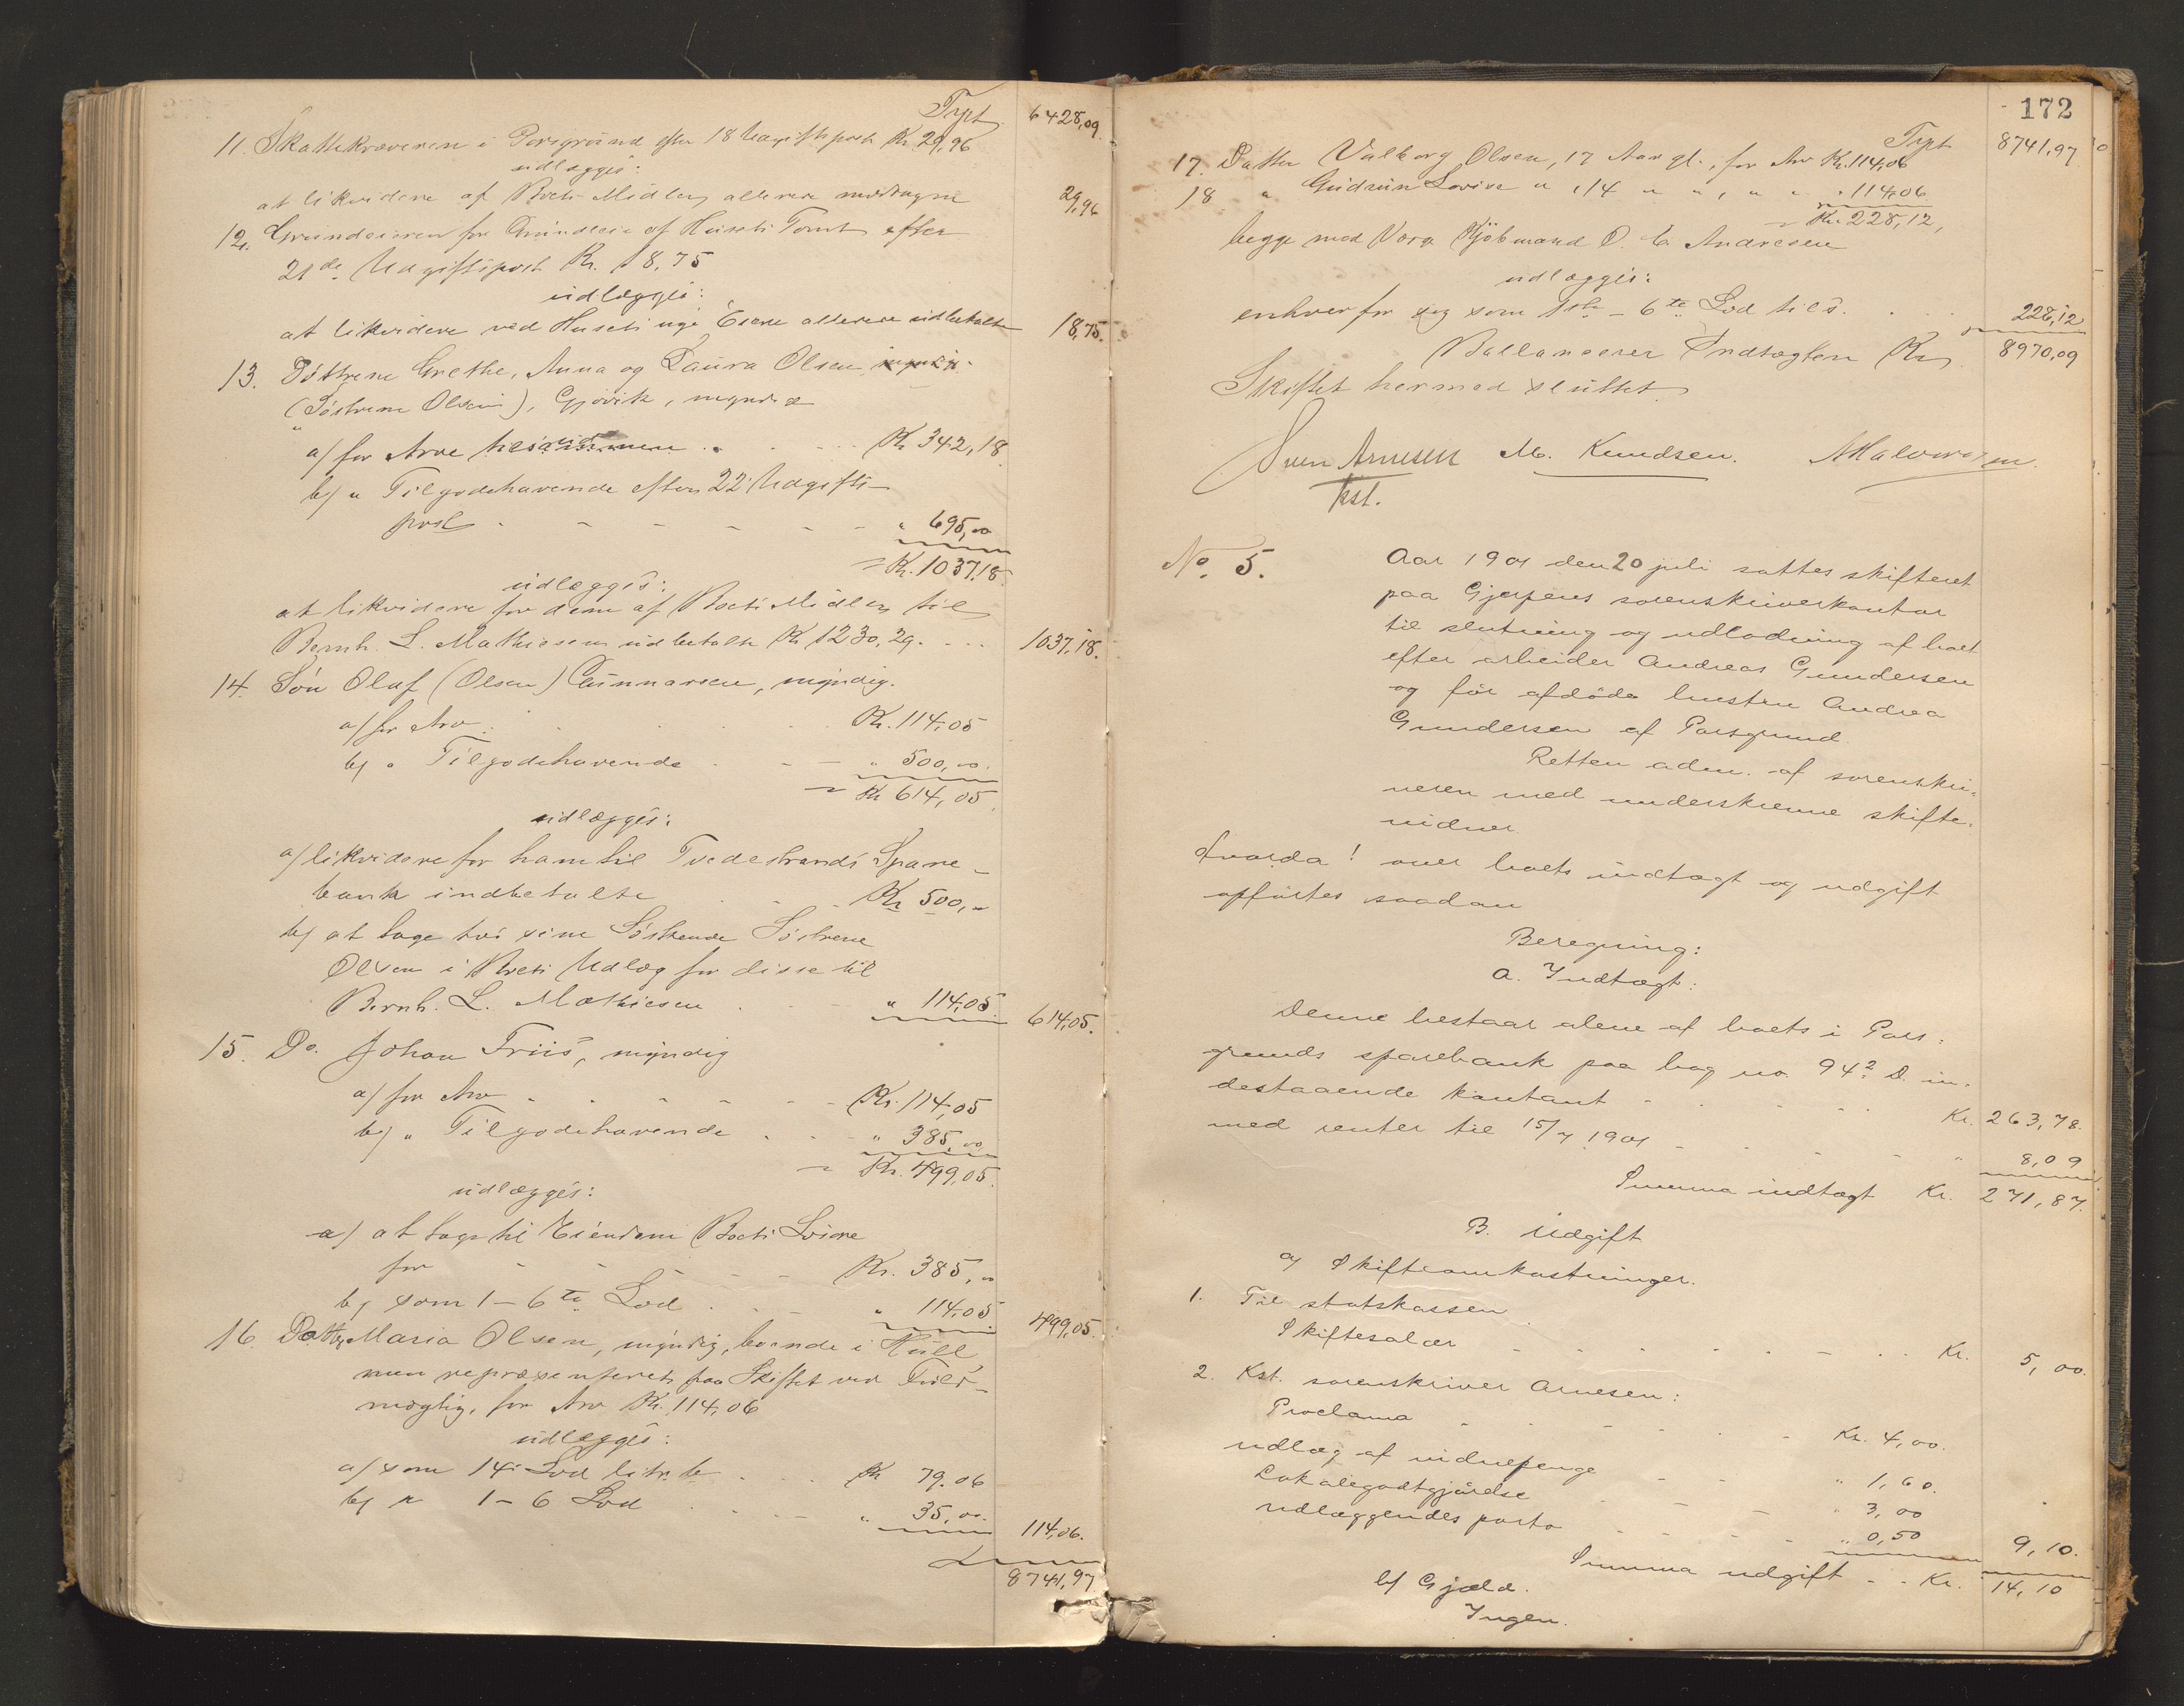 Trpt. 6428,09.
11. Skattekræveren i Porsgrund efter 18 Udgiftspost Kr. 29,96
udlægges:
at likvidere af Boets Midler allerede modtagne 29,96
12. Grundeieren for Grundleie af Husets Tomt efter
21de Udgiftspost Kr. 18,75
udlægges:
at likvidere ved Husets nye Eiere allerede udbetalte 18,75.
13. Døttrene Grethe, Anna og Laura Olsen
(Søstrene Olsen), Gjøvik, myndige
a/ for Arv tilsammen . . . Kr. 342,18
b/ " Tilgodehavende efter 22 Udgifts-
post - - - - - - " 695,00
= Kr. 1037,18
udlægges:
at likvidere for dem af Boets Midler til
Bernh. L. Mathiesen udbetalte Kr. 1230,29. . . . 1037,18.
14. Søn Olaf (Olsen) Gunnarsen, myndig.
a/ for Arv . . . Kr. 114,05
b/ " Tilgodehavende . - - " 500,00.
= Kr. 614,05.
udlægges:
a/ likvidere for ham til Tvedestrands Spare-
bank indbetalte . . . Kr. 500,00
b/ at tage hos sine Søskende Søstrene
Olsen i Boets Udlæg for disse til
Bernh. L. Mathiesen . . - " 114,05. 614,05.
15. Do. Johan Friis, myndig
a/ for Arv - - - - - Kr. 114,05
b/ " Tilgodehavende . . - " 385,00
= Kr. 499,05.
udlægges:
a/ at tage til Eiendom Boets Løsøre
for - - - - - Kr. 385,00
b/ som 1 - 6te Lod . . - " 114,05. 499,05.
16. Datter Maria Olsen, myndig, boende i Hull,
men repræsenteret paa Skiftet ved Fuld-
mægtig, for Arv Kr. 114,06
udlægges:
a/ som 14 Lod litr. b . . Kr. 79,06
b/ " 1 - 6 Lod . . . - " 35,00. 114,06.
8741,97
172
Trpt. 8741,97
17. Datter Valborg Olsen, 17 Aar gl., for Arv Kr. 114,06
18 " Gudrun Lovise " , 14 " " , " " " 114,06
= Kr. 228,12,
begge med Værge Kjøbmand O. C. Andresen
udlægges:
enhver for sig som 1ste - 6te Lod tils. . . . 228,12
Ballancerer Indtægten Kr. 8970,09
Skiftet hermed sluttet.
Sven Arnesen M. Knudsen. A Halvorsen.
kst.
No. 5. Aar 1901 den 20 juli sattes skifteret
paa Gjerpens sorenskriverkontor
til slutning og udlodning af boet
efter arbeider Andreas Gundersen
og før afdøde hustru Andrea
Gundersen af Porsgrund.
Retten adm. af sorenskri-
veren med underskrevne skifte-
vidner.
Hvorda! over boets indtægt og udgift
opførtes saadan
Beregning:
A. Indtægt:
Denne bestaar alene af boets i Pors-
grunds sparebank paa bog no. 942 D. in-
destaaende kontant - - - - Kr. 263,78.
med renter til 15/7 1901 - - - - " 8,09
Summa indtægt Kr. 271,87.
B. Udgift
a/ Skifteomkostninger.
1. Til statskassen
Skiftesalær - - - - - Kr. 5,00.
2. Kst. sorenskriver Arnesen:
Proclama - - - - - Kr. 4,00.
udlæg af vidnepenge - - " 1,60.
Lokalegodtgjørelse - - - " 3,00
udlæggendes porto - - - " 0,50 9,10.
Summa udgift - - Kr. 14,10
b/ Gjæld.
Ingen.